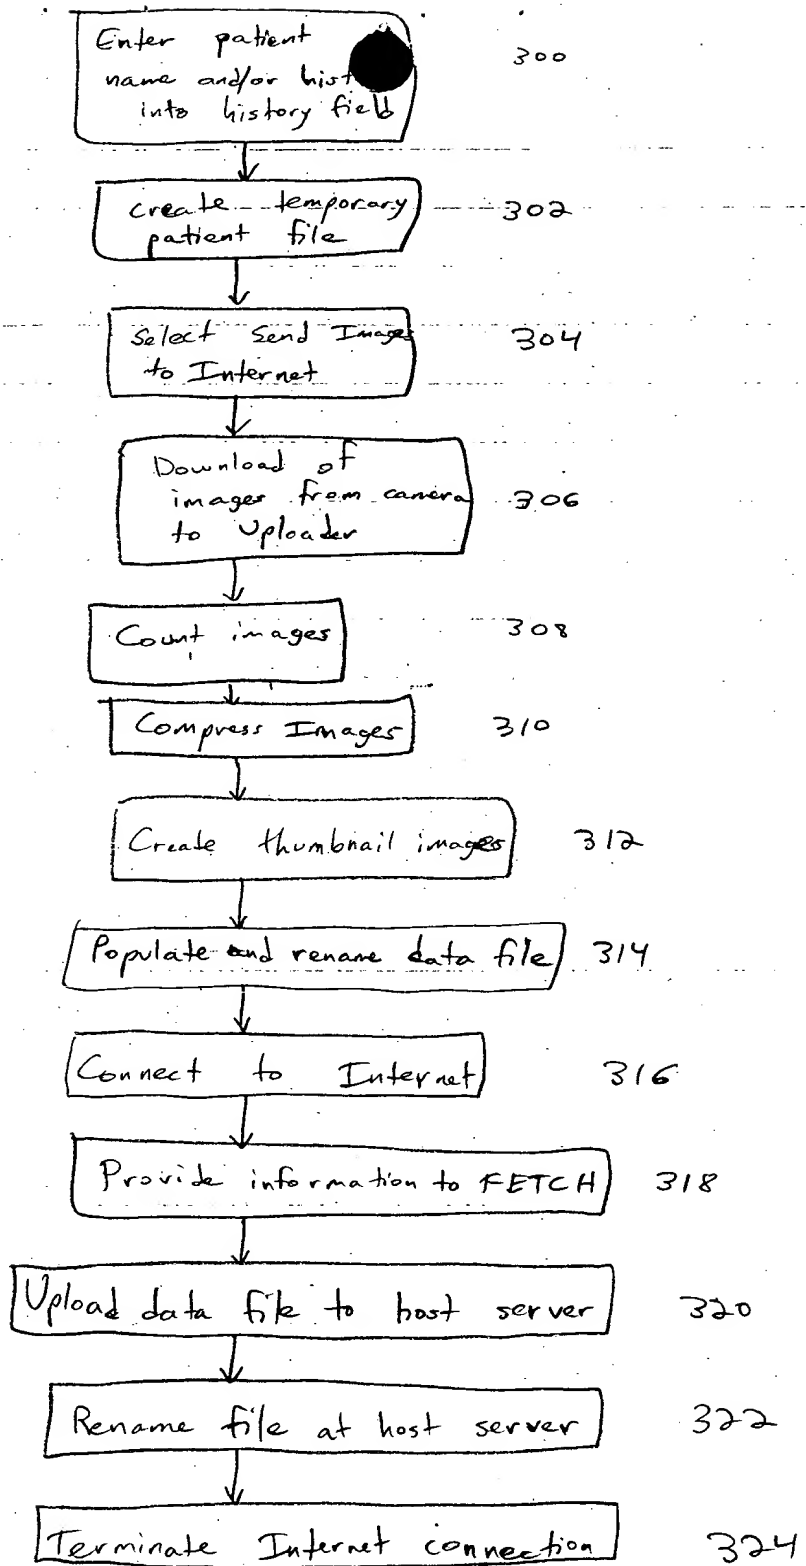 Enter patient
300
name and/or hist
into history field
create temporary
302
patient file
Select Send Images
304
to Internet
Download of
images from camera
306
to Uploader
Count images
308
Compress Images
310
Create thumbnail images
312
Populate and rename data file
314
Connect to Internet
316
Provide information to FETCH
318
Upload data file to host server
320
Rename file at host server
322
Terminate Internet connection
324